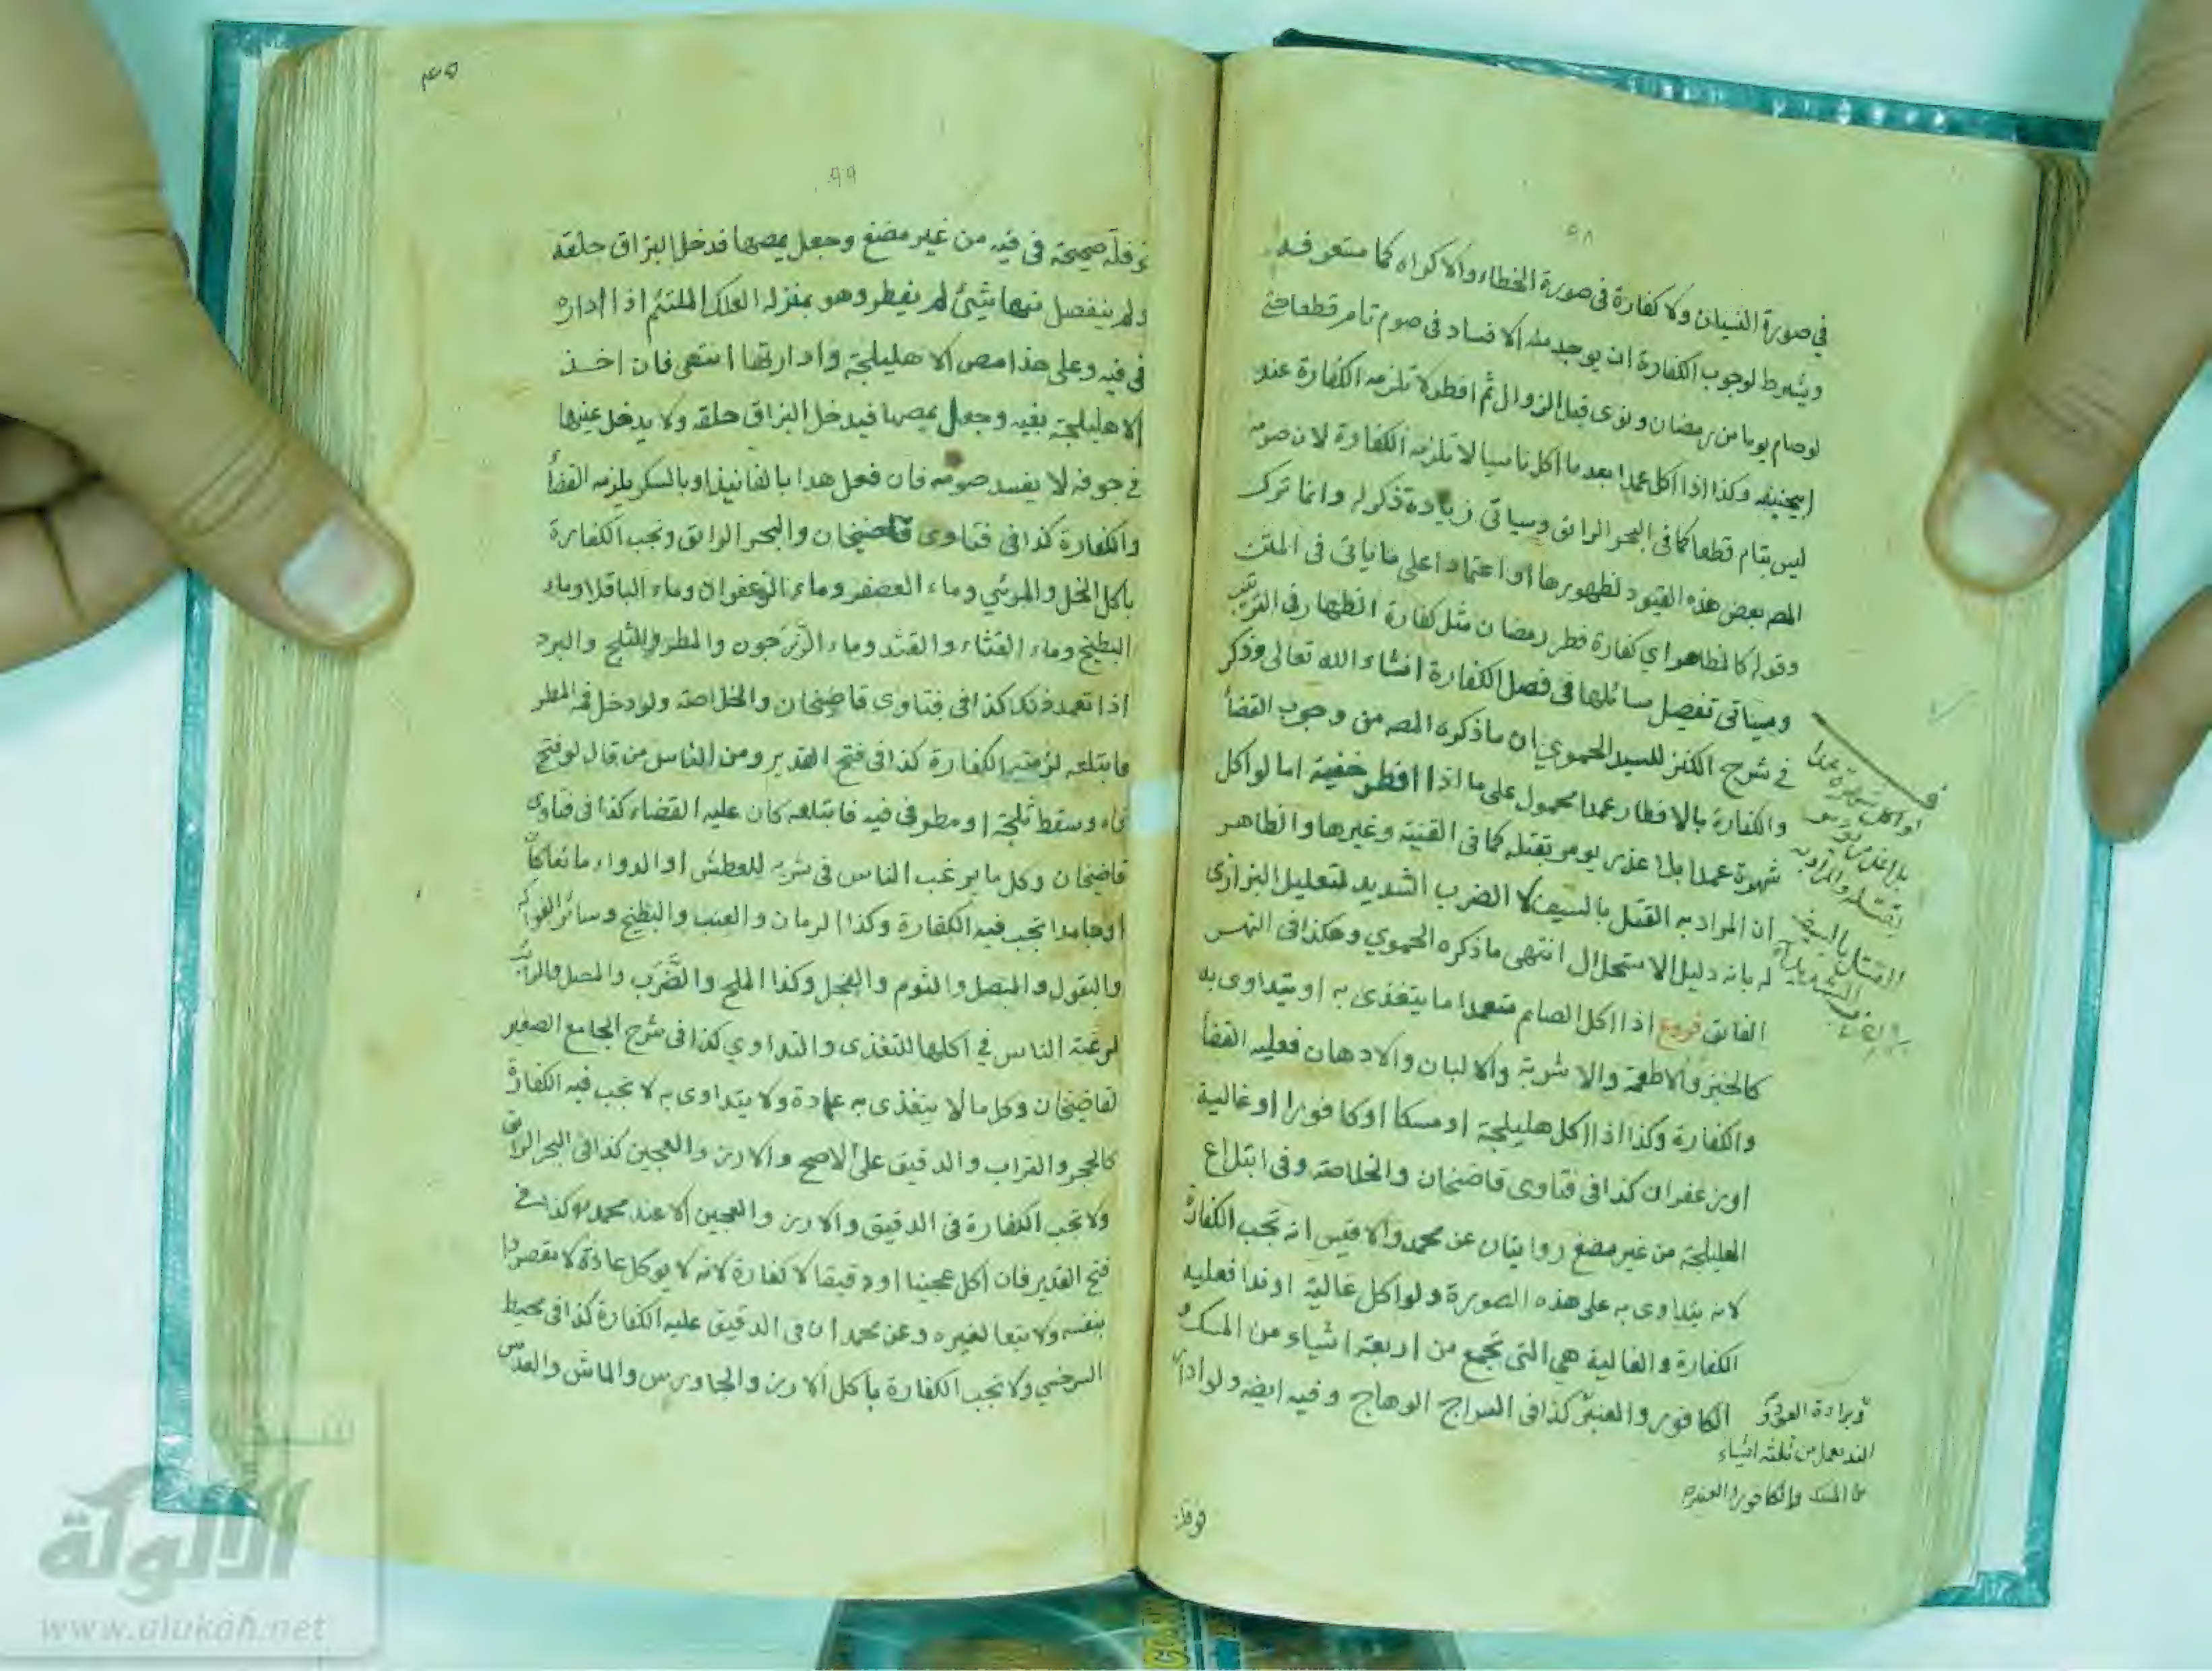 ٩٨
في صورة النسيان ولا كفارة في صورة الخطاء والاكراه كما ستعرفه
ويشرط لوجوب الكفارة ان يوجد منه الافساد في صوم تام قطعا حتى
لوصام يوما من رمضان ونوى قبل الزوال ثم افطر لا تلزمه الكفارة عند
ابيحنيفه وكذا اذا اكل عمدا بعد ما اكل ناسيا لا تلزمه الكفارة لان صومه
ليس بتام قطعا كما في البحر الرائق وسياتى زيادة ذكر له وانما ترك
المصـ بعض هذه القيود لظهورها او اعتمادا على ما ياتى في المتن
وقوله كالمظاهر اي كفارة فطر رمضان مثل كفارة الظهار في الترتيب
وسياتى تفصل سائلها في فصل الكفارة انشاء الله تعالى وذكر
في شرح الكنز للسيد الحموي ان ماذكره المصـ من وجوب القضا
والكفارة بالافطار عمدا محمول على ما اذا افطر خفية اما لو اكل
شهرة عمدا بلا عذر يومر بقتله كما في القنية وغيرها والظاهر
ان المراد به القتل بالسيف لا الضرب الشديد لتعليل البزازى
له بانه دليل الاستحلال انتهى ماذكره الحموي وهكذا في النهر
الفائق فروع اذا اكل الصائم متعمدا ما يتغذى به او يتداوى به
كالخبز والاطعمة والاشربة والالبان والادهان فعليه القضا
والكفارة وكذا اذا اكل هليلجة او مسكا او كافورا او غالية
او زعفران كذا في فتاوى قاضيخان والخلاصة وفي ابتلاع
الهليلجة من غير مضغ روايتان عن محمد والاقيس انه تجب الكفارة
لانه يتداوى به على هذه الصورة ولو اكل غالية او ندا فعليه
الكفارة والغالية هي التى تجمع من اربعة اشياء من المسك و
الكافور والعنبر كذا في السراج الوهاج وفيه ايضه ولو ادا
وبرادة العود و
الند يعمل من ثلثة اشياء
من المسك والكافور والعنبر
فوفلة
٤٥
٩٩
فوفلة صحيحة في فيه من غير مضغ وجعل يمصها فدخل البزاق حلقه
ولم ينفصل منها شيئ لم يفطر وهو بمنزلة العلك الملتئم اذا اداره
في فيه وعلى هذا مص الاهليلجة وادارتها انتهى فان اخذ
الاهليلجة بفيه وجعل يمصها فيدخل البزاق حلقه ولا يدخل عينها
في جوفه لا يفسد صومه فان فعل هذا بالفانيذ او بالسكر يلزمه القضا
والكفارة كذا في فتاوى قاضيخان والبحر الرائق وتجب الكفارة
باكل الخل والمرئي وماء العصفر وماء الزعفران وماء الباقلا وماء
البطيخ وماء القثاء والقثد وماء الزرجون والمطر والثلج والبرد
اذا تعمد ذلك كذا في فتاوى قاضيخان والخلاصة ولو دخل فمه المطر
فابتلعه لزمته الكفارة كذا في فتح القدير ومن الناس من قال لو فتح
فاه وسقط ثلجة او مطر في فيه فابتلعه كان عليه القضاء كذا في فتاوى
قاضيخان وكل ما يرغب الناس في شربه للعطش او الدواء مائعا كان
او جامدا تجب فيه الكفارة وكذا الرمان والعنب والبطيخ وسائر الفواكه
والبقول والبصل والثوم والفجل وكذا الملح والضرب والمصل والرائب
لرغبة الناس في اكلها للتغذى والتداوي كذا في شرح الجامع الصغير
لقاضيخان وكل مالا يتغذى به عادة ولا يتداوى به لا تجب فيه الكفارة
كالحجر والتراب والدقيق على الاصح والارز والعجين كذا في البحر الرائق
ولا تجب الكفارة في الدقيق والارز والعجين الا عند محمد كذا في
فتح القدير فان اكل عجينا او دقيقا لا كفارة لانه لا يوكل عادة لا مقصودا
بنفسه ولا تبعا لغيره وعن محمد ان في الدقيق عليه الكفارة كذا في محيط
السرخسي ولا تجب الكفارة باكل الارز والجاورس والماش والعدس
الألوكة
www.alukah.net